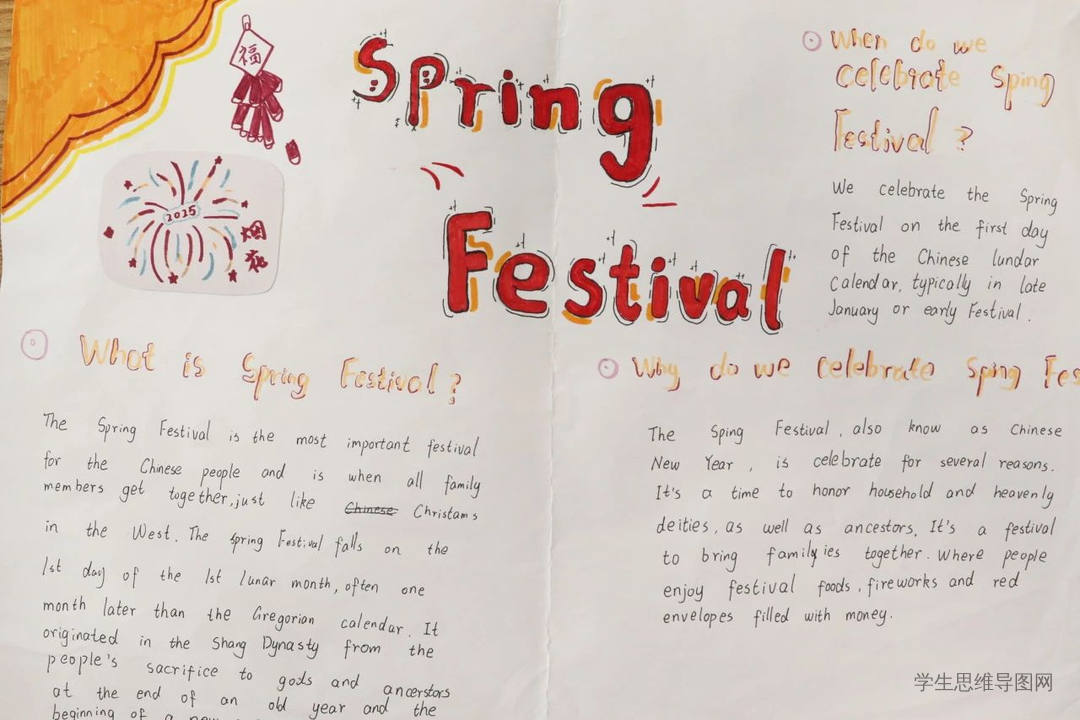 福
Spring
Festival
2025
烟花
When do we
celebrate Sping
Festival ?
We celebrate the Spring
Festival on the first day
of the Chinese lundar
Calendar, typically in late
January or early Festival.
What is Spring Festival ?
The Spring Festival is the most important festival
for the Chinese people and is when all family
members get together, just like Chinese Christams
in the West. The spring Festival falls on the
1st day of the 1st lunar month, often one
month later than the Gregorian calendar. It
originated in the Shang Dynasty from the
people's sacrifice to gods and ancerstors
at the end of an old year and the
beginning of a new
Why do we celebrate Sping Fes
The Sping Festival, also know as Chinese
New Year, is celebrate for several reasons.
It's a time to honor household and heavenly
deities, as well as ancestors. It's a festival
to bring familyies together. Where people
enjoy festival foods, fireworks and red
envelopes filled with money.
学生思维导图网